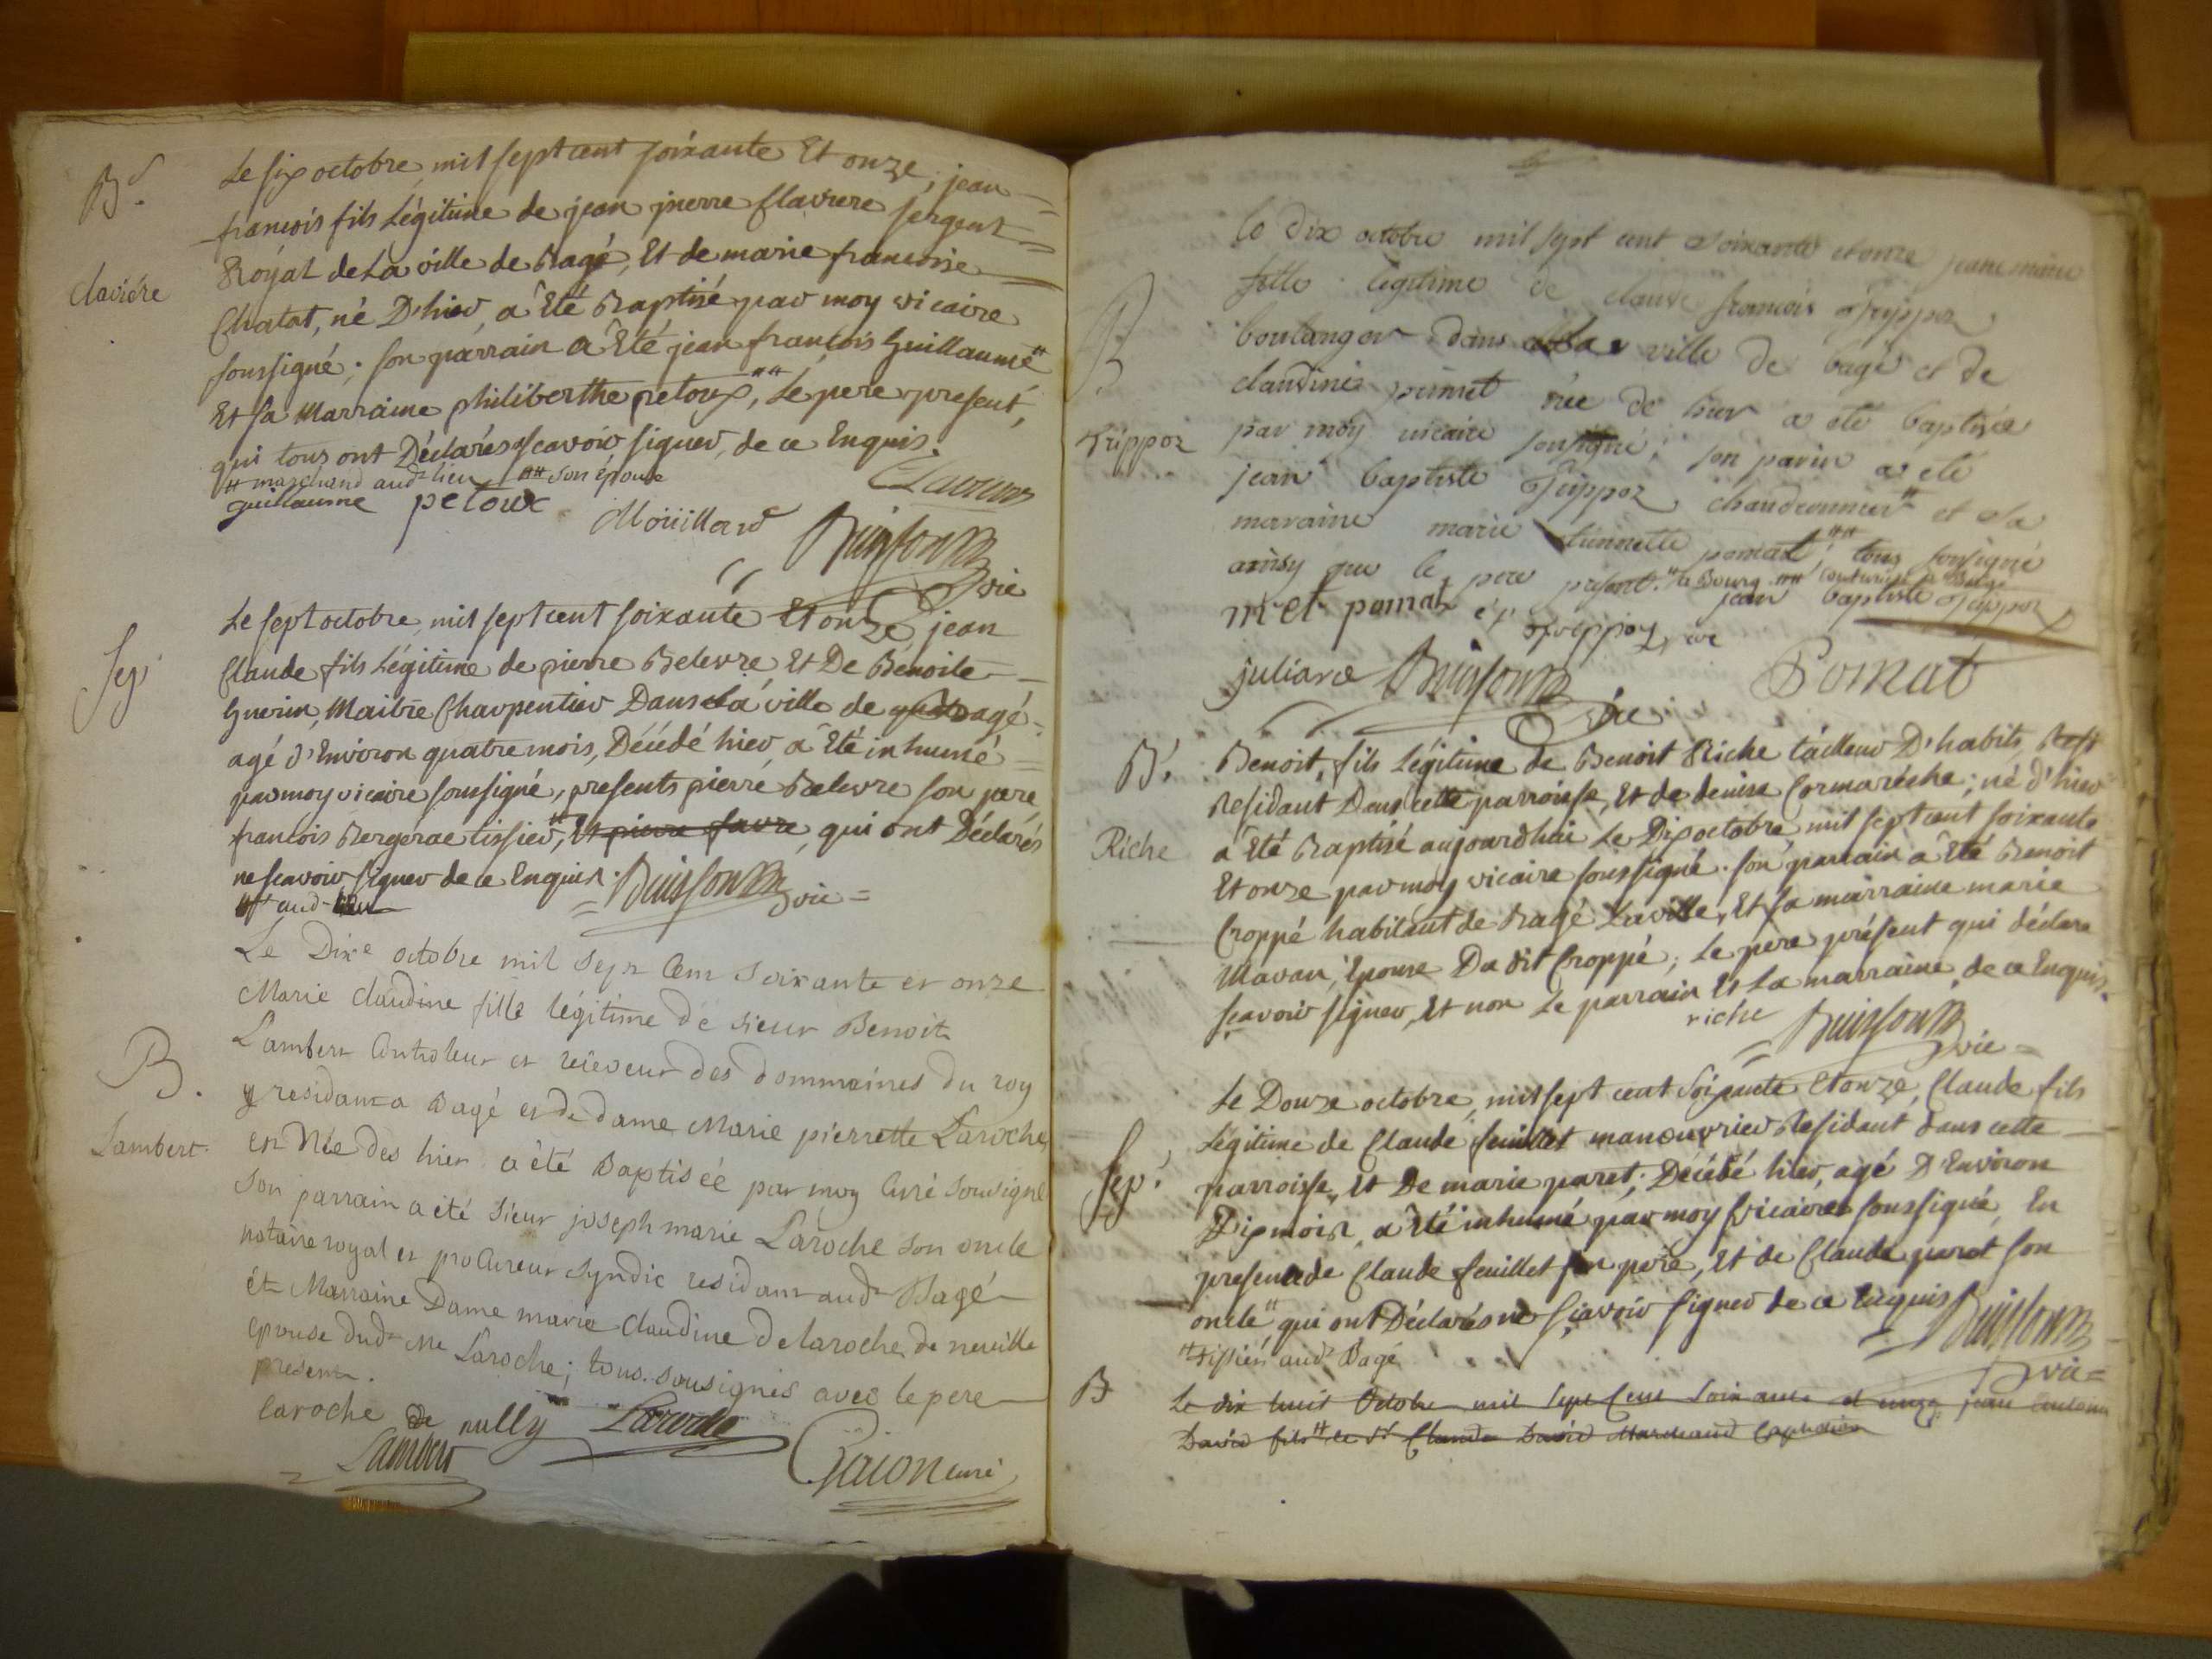 Bé.
clavière
Le six octobre, mil sept cent soixante Et onze, jean
françois fils Légitime de jean pierre Claviere sergent
Royal de La ville de Bagé, Et de marie francoise
Chatat, né D'hier, a Eté Baptisé par moy vicaire
soussigné; son parrain a Eté jean françois Guillaume #
Et sa Marraine philiberthe petoux, ## Le pere present,
qui tous ont Déclarés scavoir signer, de ce Enquis.
# marchand aud. lieu ## son épouse
guillaume petoux Claviere
Moüillard Buisson
vic
Sep.
Le sept octobre, mil sept cent soixante Et onze, jean
Claude fils Légitime de pierre Belevre, Et De Benoite
Guerin, Maitre Charpentier Dans La ville de Bagé
agé d'Environ quatre mois, Décédé hier, a Eté inhumé
par moy vicaire soussigné, presents pierre Belevre son pere
francois Bergerae tissier, # Et pierre favre, qui ont Déclarés
ne scavoir signer de ce Enquis. Buisson vic =
# aud. lieu
B.
Lambert.
Le Dixe octobre mil Sept Cent Soixante et onze
Marie claudine fille légitime de sieur Benoit
Lambert Controleur et receveur des dommaines du roy
y residant a Bagé et de dame Marie pierrette Laroche
et Née des hier a été Baptisée par moy Curé sousigné
son parrain a été Sieur joseph marie Laroche son oncle
notaire royal et procureur syndic residant aud. Bagé
et Marraine Dame marie claudine de laroche de neuille
epouse dud. Me Laroche; tous sousignés avec le pere
present.
laroche de nully Laroche
Lambert Gaion curé
B
Trippoz
le dix octobre mil sept cent soixante et onze jeane marie
fille legitime de claude françois Trippoz
boulanger dans la ville de bagé et de
claudine pimet née de hier a eté baptisée
par moy vicaire sousigné; son parin a eté
jean baptiste Trippoz chaudronnier # et sa
maraine marie etiennette pomat ## tous sousigné
ainsy que le pere présent. # de Bourg. ## couturiere a Bagé
met pomat jean baptiste Trippoz
Trippoz
juliard Buisson Pomat
vic
Bé.
Riche
Benoit, fils Légitime de Benoit Riche tailleur D'habits, Rest
Residant Dans cette parroisse, Et de denise Cormarêche; né d'hier
a Eté Baptisé aujourdhui Le Dix octobre, mil sept cent soixante
Et onze par moy vicaire soussigné. son parrain a Eté Benoit
Croppé habitant de Bagé La ville, Et sa marraine marie
Mavan, Epouse Du dit Croppé; Le pere présent qui déclare
scavoir signer, Et non Le parrain Et La marraine, de ce Enquis.
riche Buisson
vic =
Sep.
Le Douze octobre, mil sept cent Soixante Et onze, Claude fils
Légitime de Claude feuillet manouvrier Residant dans cette
parroisse, Et De marie paret; Décédé hier, agé D'Environ
Dix mois, a Eté inhumé par moy vicaire soussigné, En
presence de Claude feuillet son pere, Et de Claude paret son
oncle # qui ont Déclarés ne scavoir signer de ce Enquis Buisson
# tissier aud. Bagé vic =
B
Le dix huit Octobre mil Sept Cent Soixante et onze, jean
David fils # de Sr Claude David Marchand